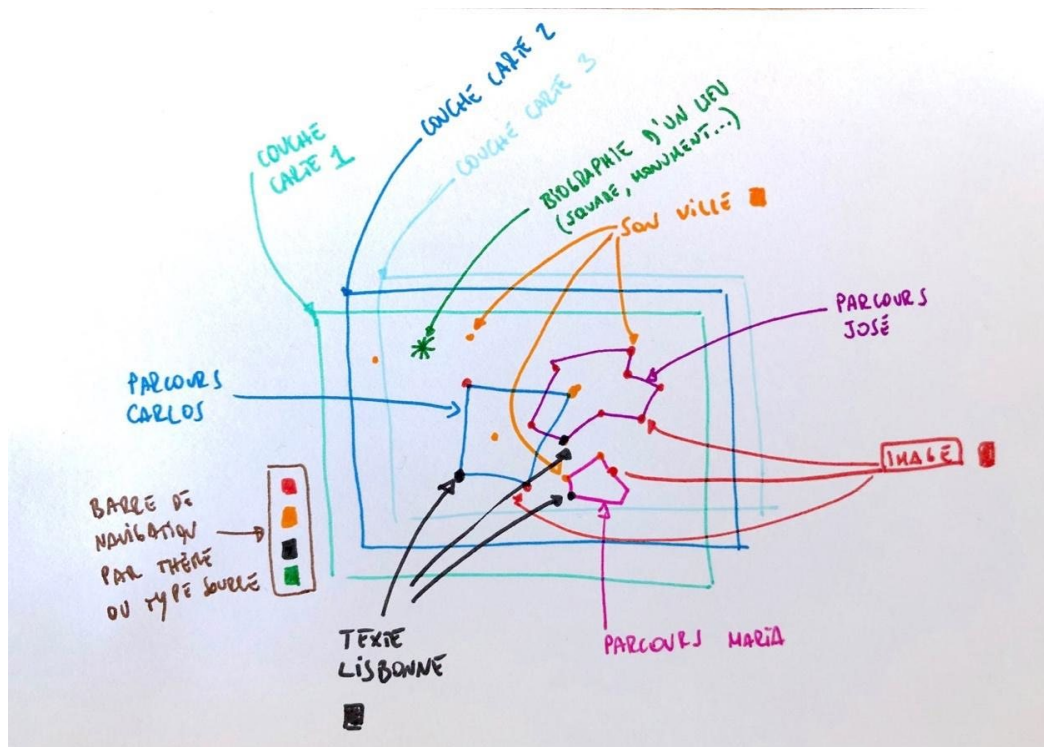 COUCHE CARTE 2
COUCHE CARTE 3
COUCHE
CARTE 1
BIOGRAPHIE D'UN LIEU
(SQUARE, MONUMENT...)
SON VILLE
PARCOURS
JOSÉ
PARCOURS
CARLOS
IMAGE
BARRE DE
NAVIGATION
PAR THÈME
OU TYPE SOURCE
TEXTE
LISBONNE
PARCOURS MARIA